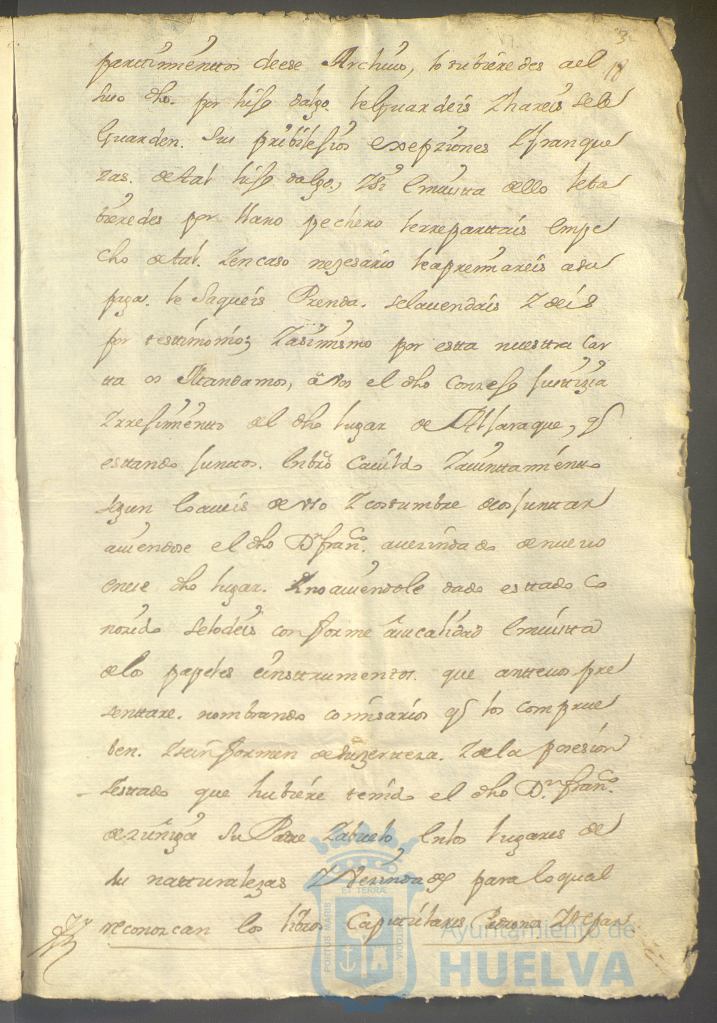 3
18
partimentos deese Archivo, lo tubieredes a el
suso dho. por hijo dalgo. le Guardeis Z hareis sele
Guarden. sus pribilejios exepziones Z franque
zas. de tal hijo dalgo, Z si en vista dello leta
bieredes por llano pechero le rrepartais en pe
cho de tal. Z en caso nezesario le apremiareis a su
paga. le saqueis Prenda. se la vendais Z deis
por testimonio; Z asimismo por esta nuestra car
ta os Mandamos, a vos el dho Consejo Justizia
Z rrejimiento del dho lugar de Aljaraque, q
estando juntos. en bro Cavildo Z aiuntamiento
segun lo aveis de uso Z costumbre de os juntar
aviendose el dho Dn. franco. avezindado de nuevo
en ese dho lugar. Z no aviendole dado estado co
nozido se lo deis conforme a su calidad en vista
de los papeles e instrumentos. que ante vos pre
sentare. nombrando comisarios q los comprue
ben. Z se informen de su zerteza. Z de la posesion
Z estado que hubiere tenido el dho Dn. franco.
de zuñiga su Padre Z abuelo, en los lugares de
su naturalezas Z Vezindades para lo qual
reconozcan los libros Capitulares Padrones Z Repar
PORTUS MARIS ET TERRAE CUSTODIA
Ayuntamiento de
HUELVA